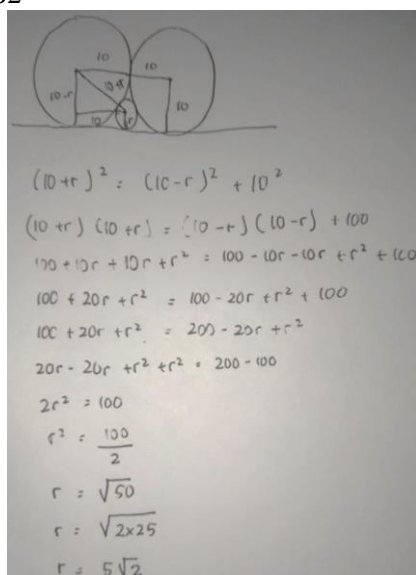 10 10
10-r 10+r
10 r 10
(10+r)² = (10-r)² + 10²
(10+r) (10+r) = (10-r) (10-r) + 100
100 + 10r + 10r + r² = 100 - 10r - 10r + r² + 100
100 + 20r + r² = 100 - 20r + r² + 100
100 + 20r + r² = 200 - 20r + r²
20r - 20r + r² + r² = 200 - 100
2r² = 100
r² = 100/2
r = √50
r = √2×25
r = 5√2